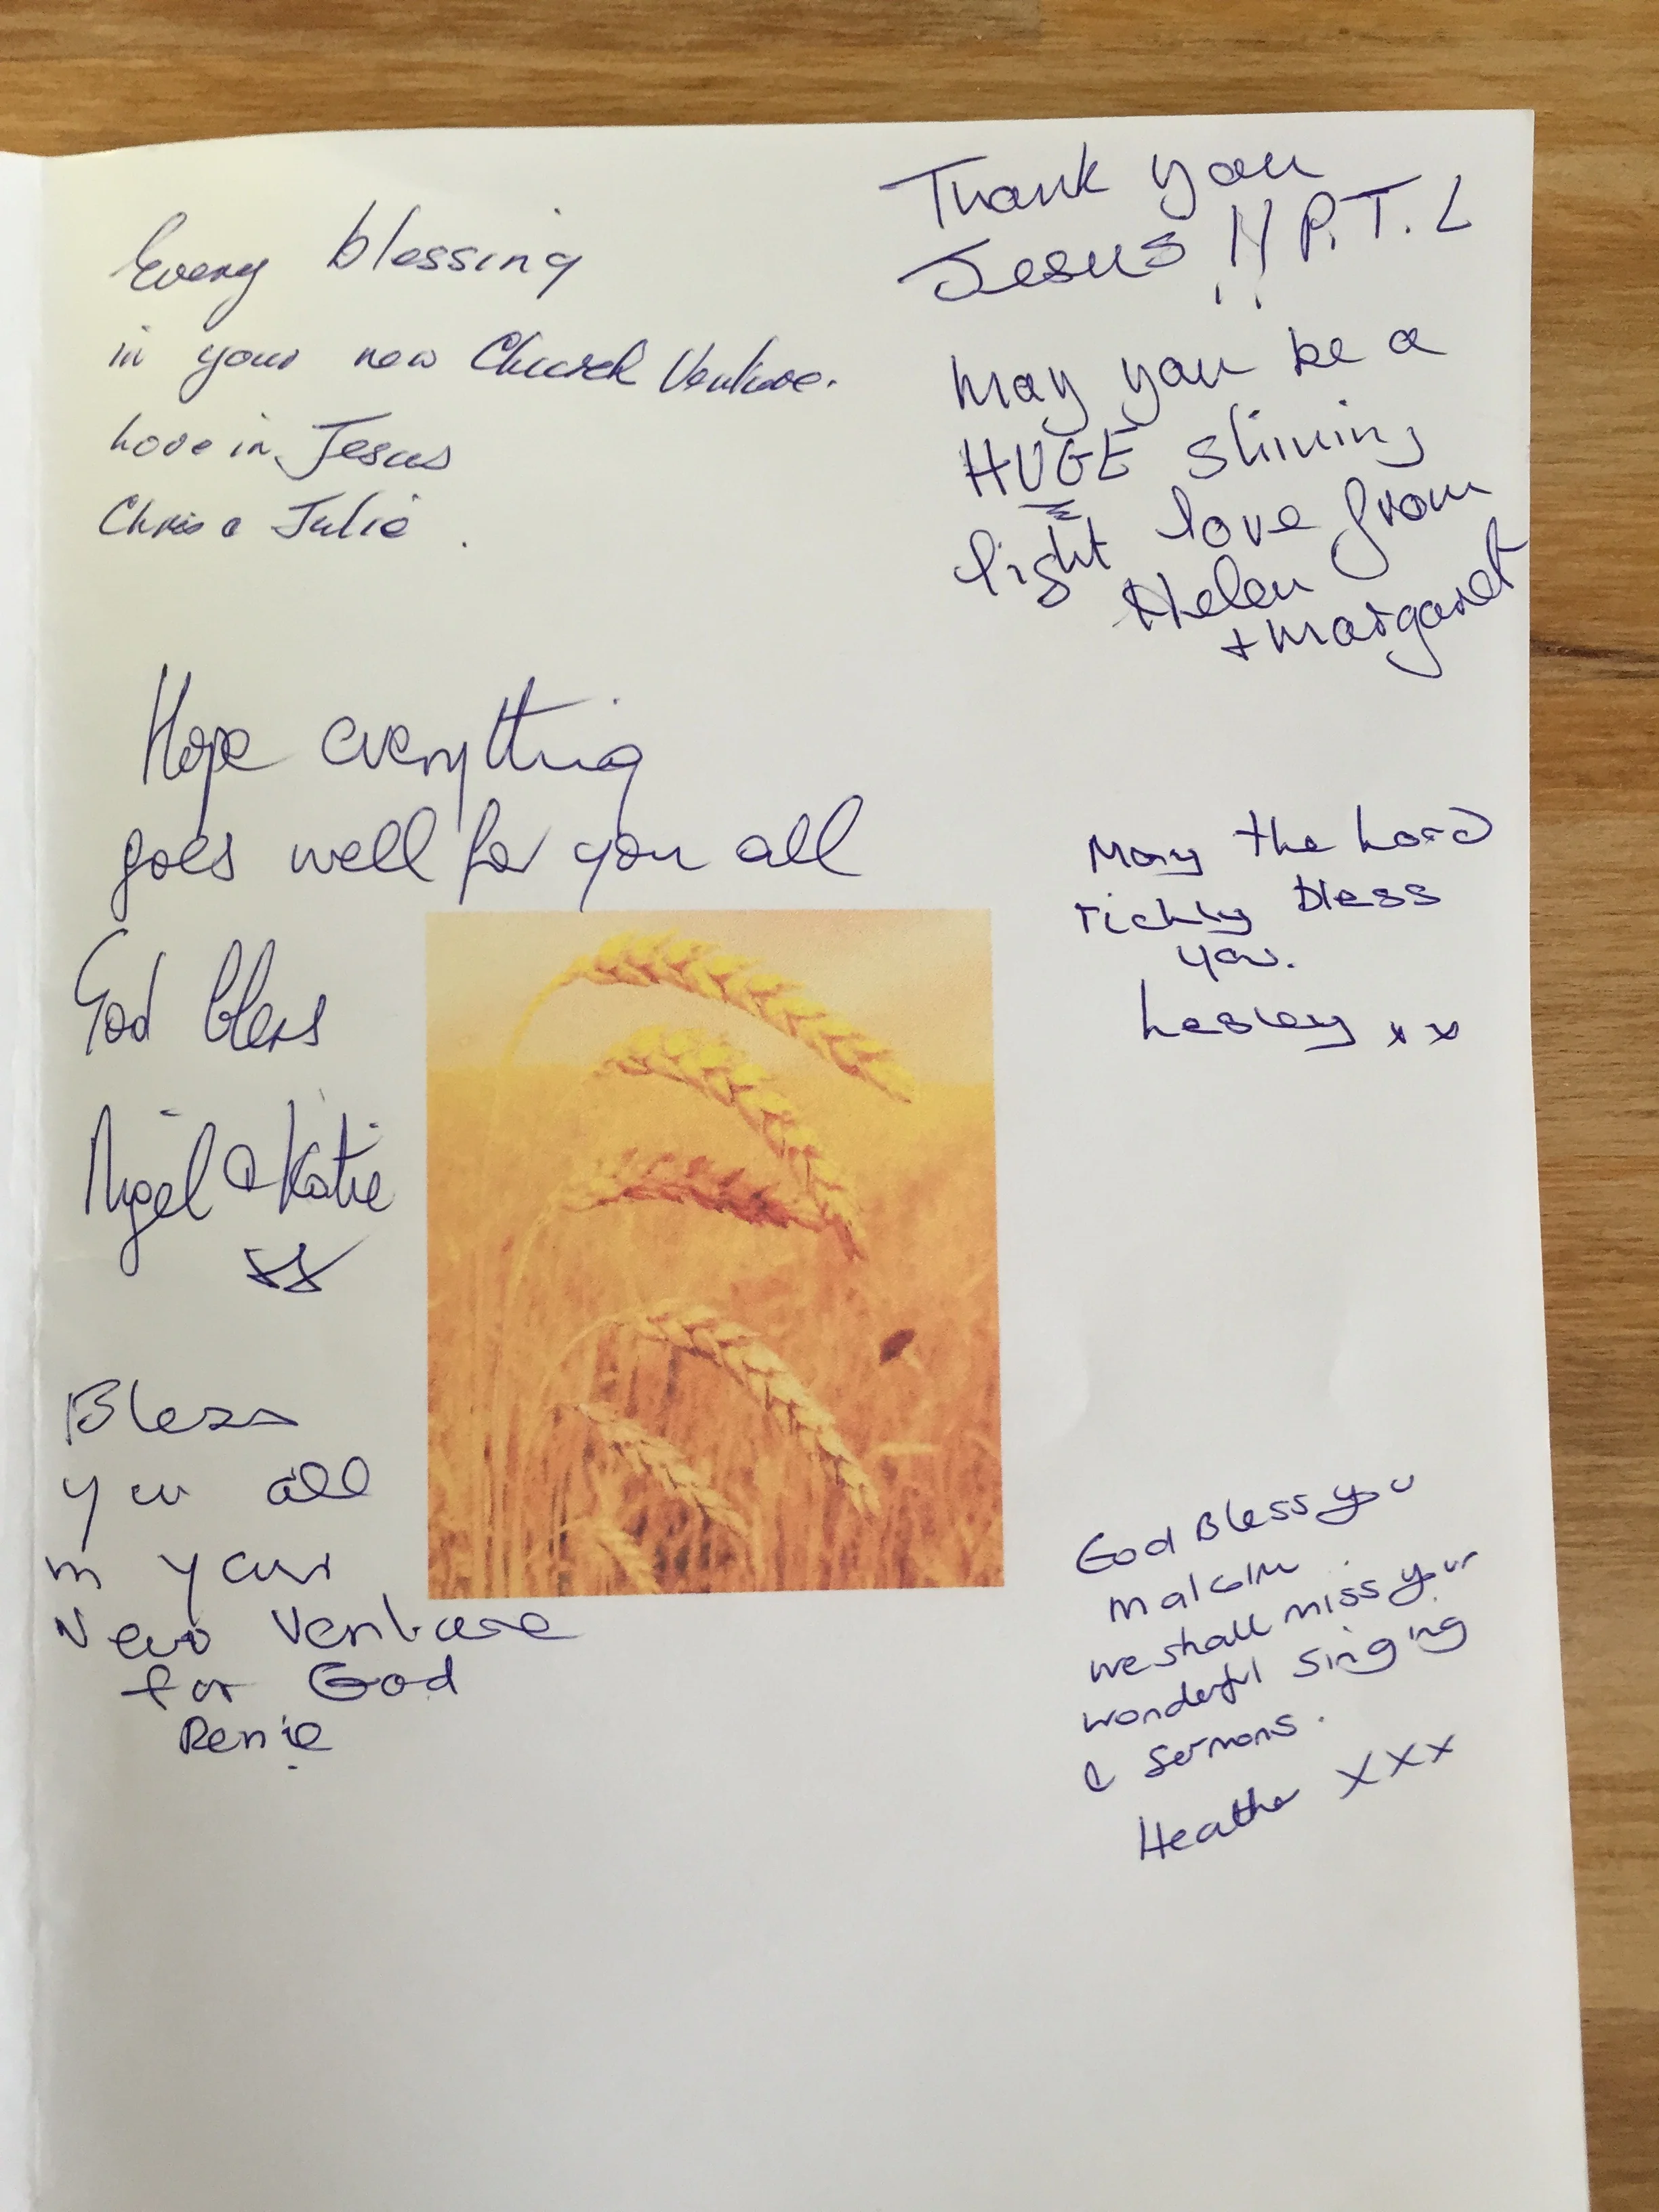 Every blessing
in your new Church Venture.
Love in Jesus
Chris & Julie.
Thank you
Jesus!! P.T.L
May you be a
HUGE shining
light love from
Helen
+ Margaret
Hope everything
goes well for you all
God bless
Nigel & Katie
xx
May the Lord
richly bless
you.
Lesley xx
Bless
you all
in your
New Venture
for God
Renie
God Bless you
Malcolm
we shall miss your
wonderful singing
& sermons.
Heather xxx